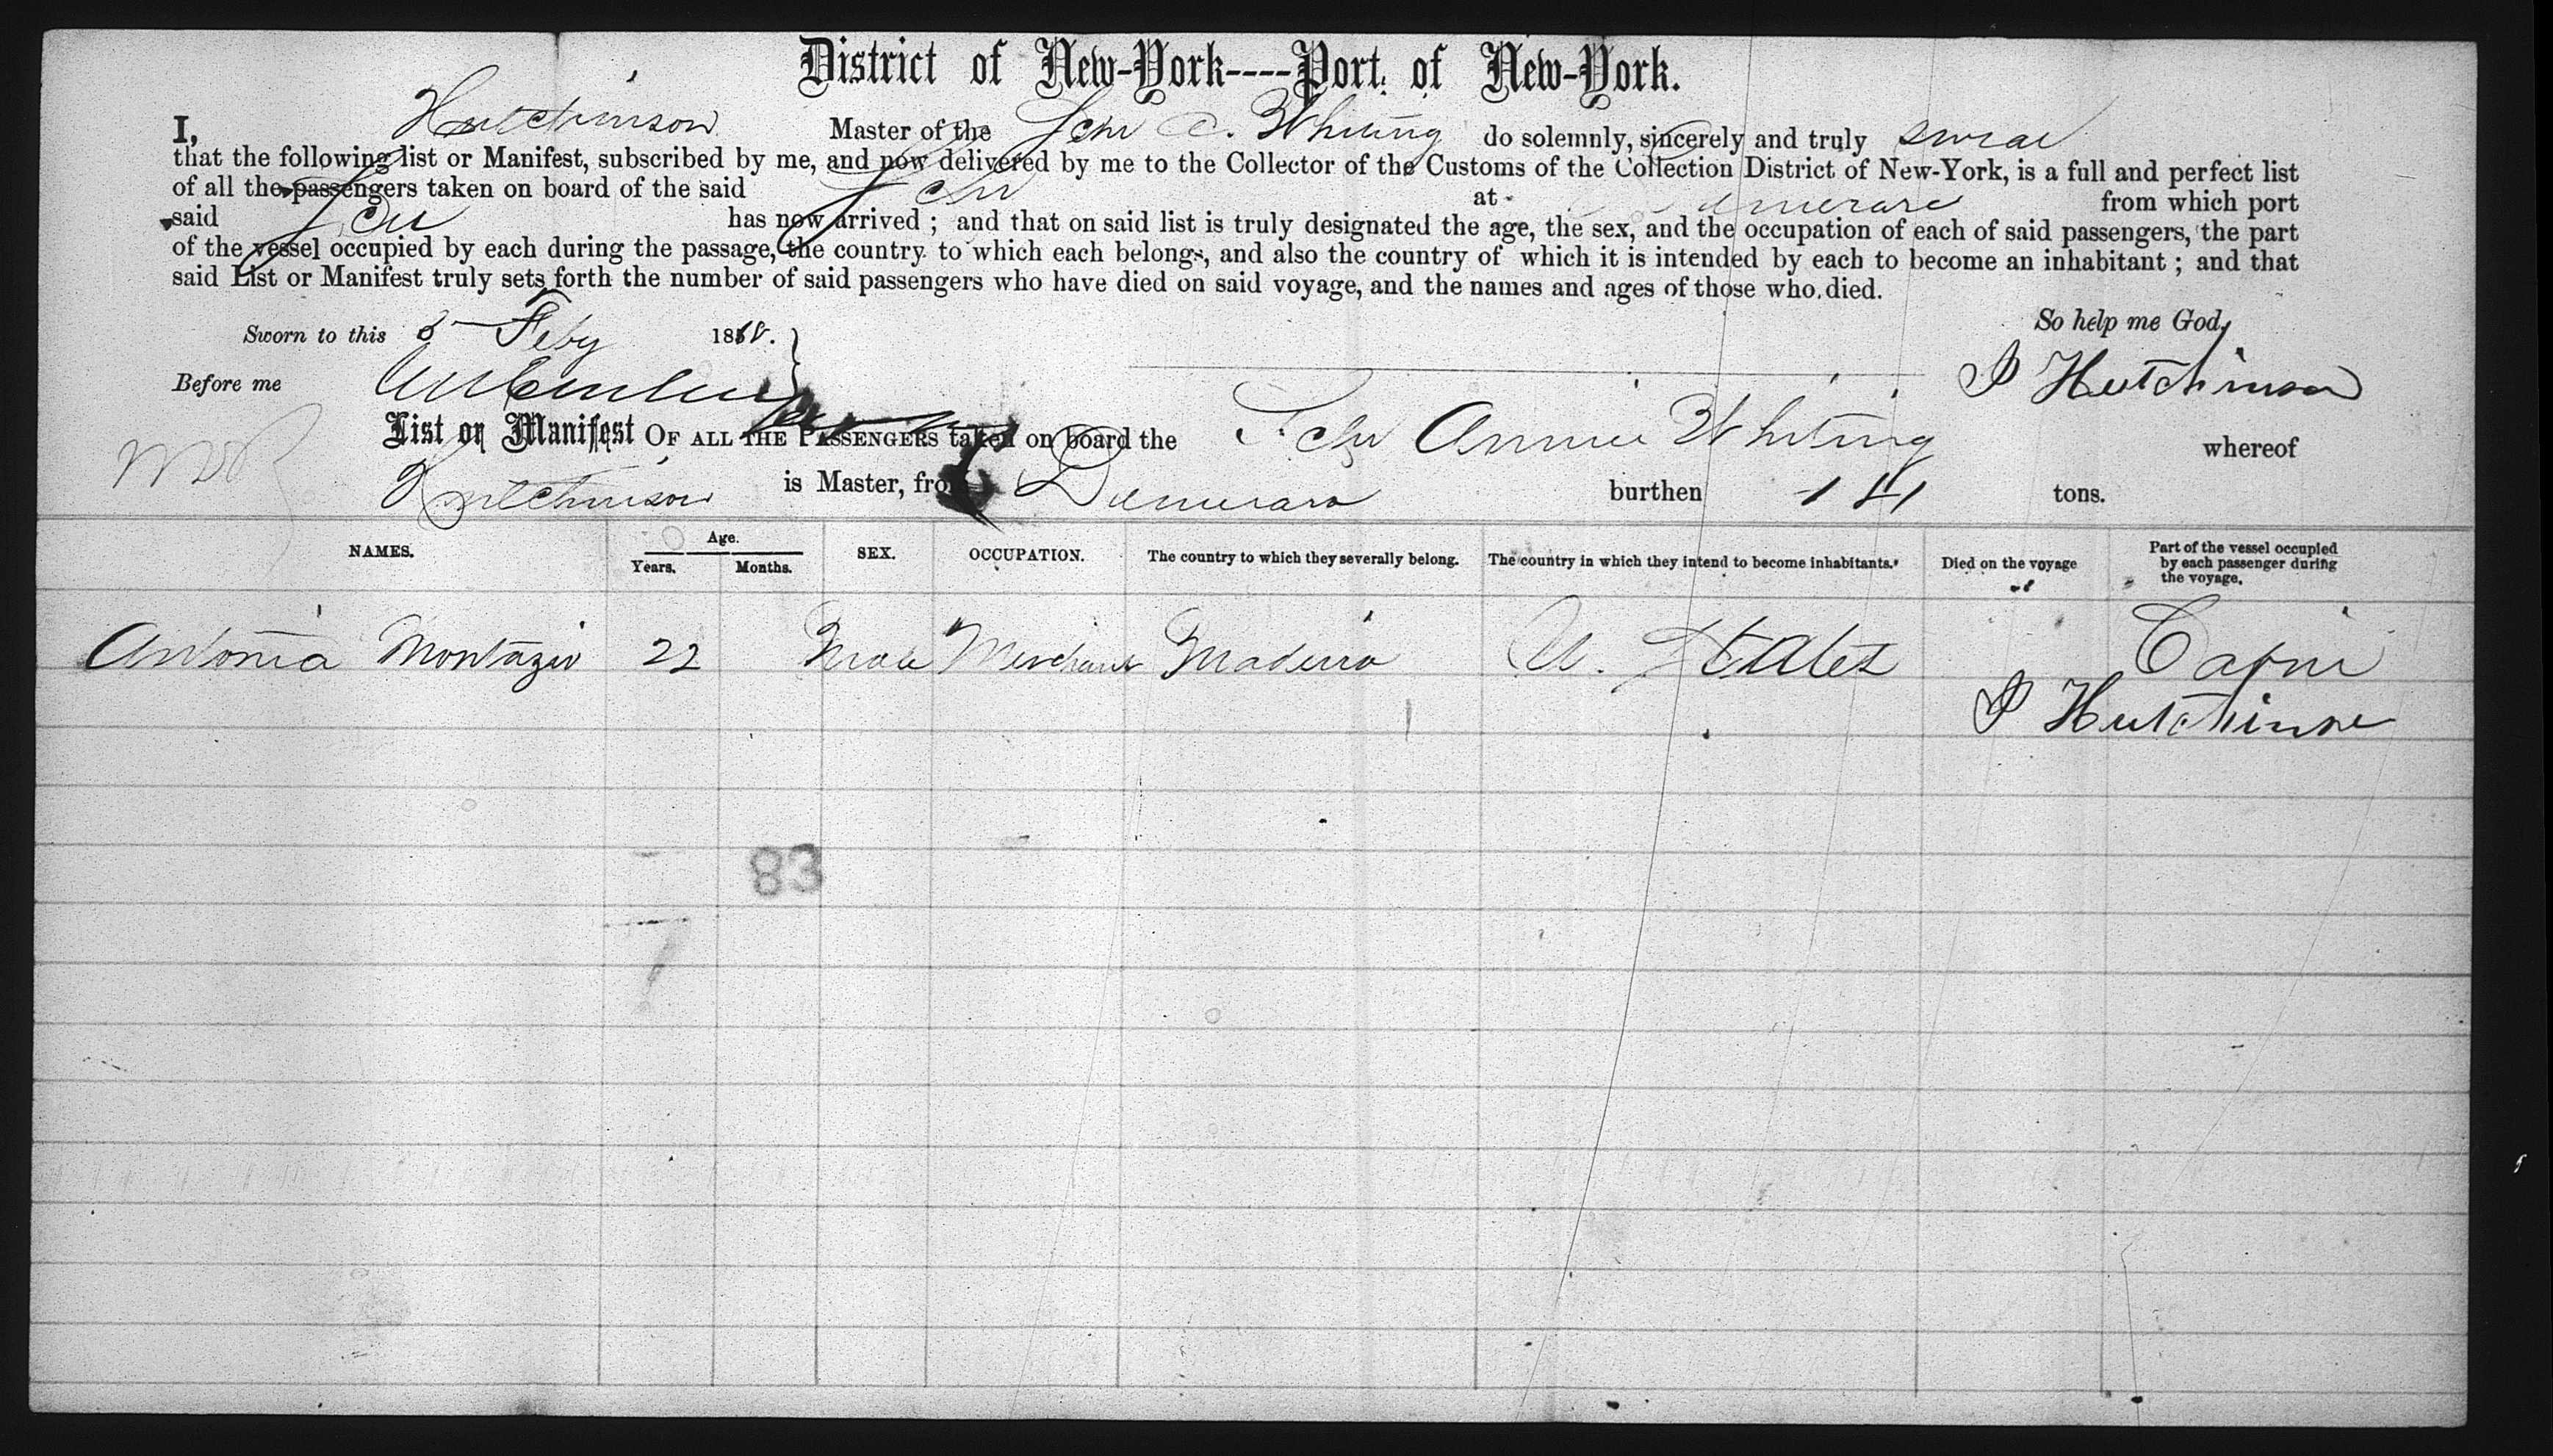 District of New-York----Port of New-York.
I, Hutchinson Master of the Schr A. Whiting do solemnly, sincerely and truly swear
that the following list or Manifest, subscribed by me, and now delivered by me to the Collector of the Customs of the Collection District of New-York, is a full and perfect list
of all the passengers taken on board of the said Schr at Demerara from which port
said Schr has now arrived ; and that on said list is truly designated the age, the sex, and the occupation of each of said passengers, the part
of the vessel occupied by each during the passage, the country to which each belongs, and also the country of which it is intended by each to become an inhabitant ; and that
said List or Manifest truly sets forth the number of said passengers who have died on said voyage, and the names and ages of those who died.
So help me God,
Sworn to this 8 Feby 1868.
Before me
P Hutchinson
List or Manifest OF ALL THE PASSENGERS taken on board the Schr Annie Whiting whereof
Hutchinson is Master, from Demerara burthen tons.
NAMES. Age. Years. Months. SEX. OCCUPATION. The country to which they severally belong. The country in which they intend to become inhabitants. Died on the voyage Part of the vessel occupied by each passenger during the voyage.
Antonia 22 Male Merchant Madeira U. States Cabin
P Hutchinson
83